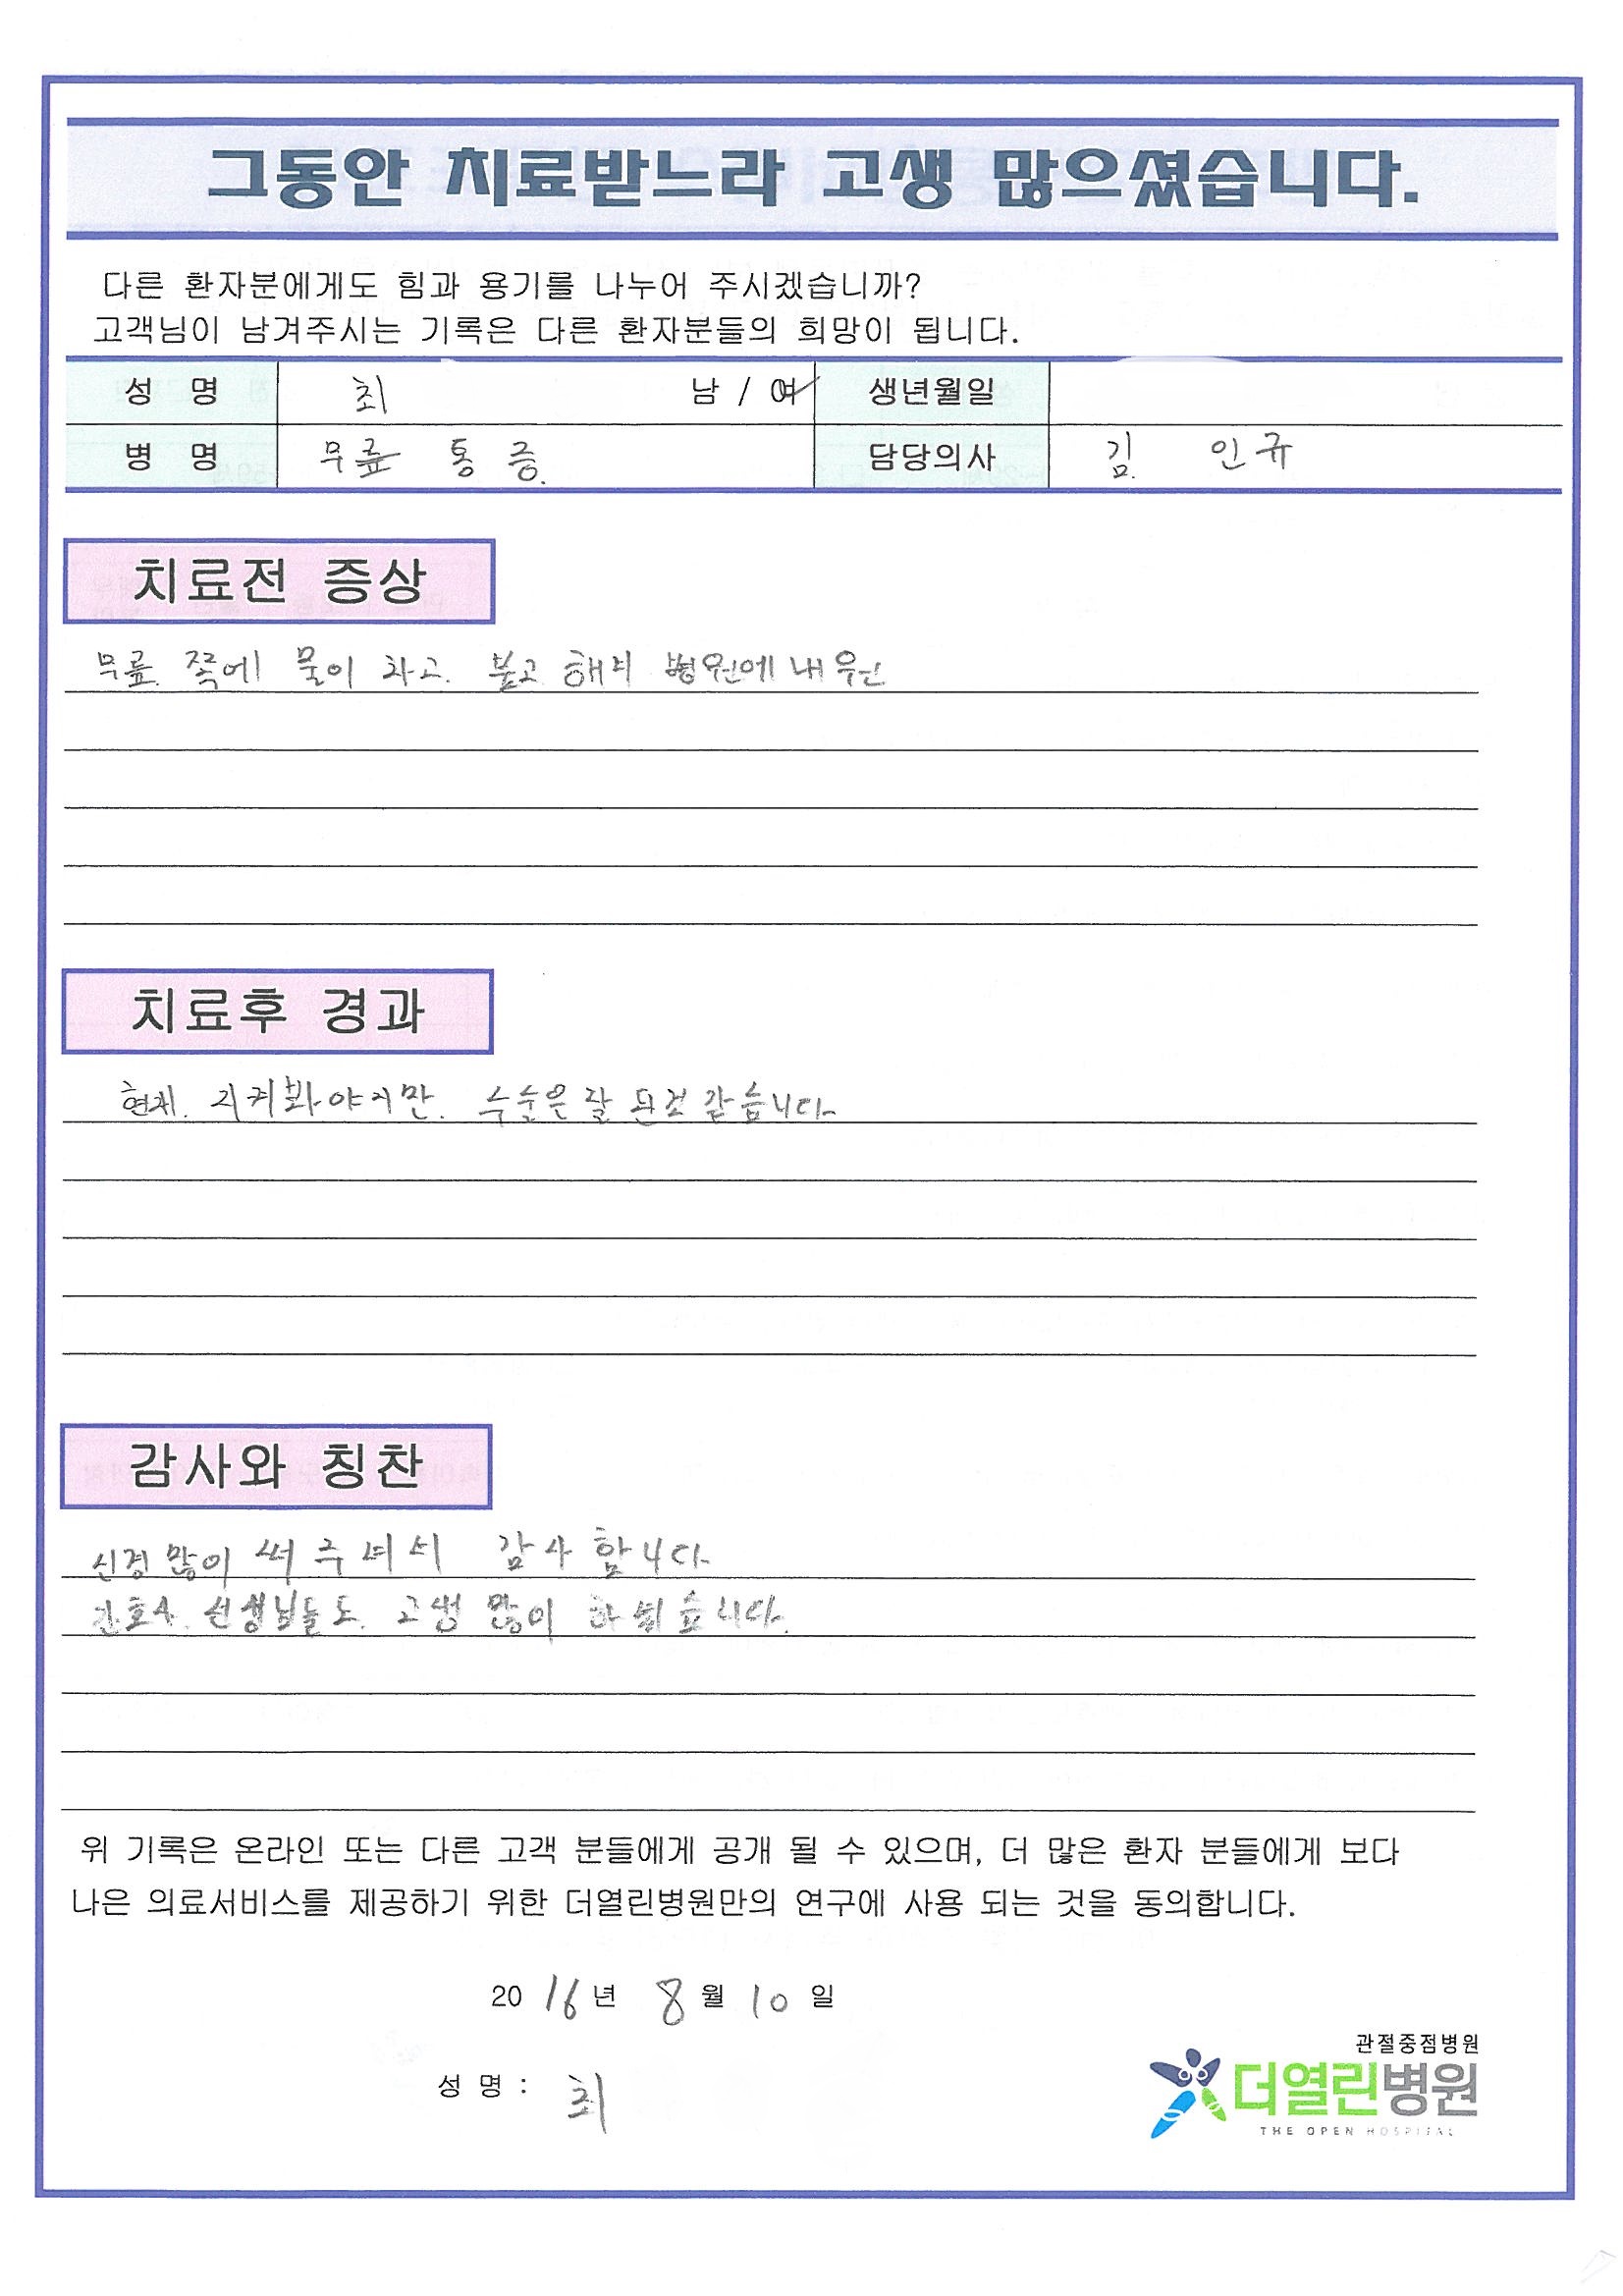 그동안 치료받느라 고생 많으셨습니다.
다른 환자분에게도 힘과 용기를 나누어 주시겠습니까?
고객님이 남겨주시는 기록은 다른 환자분들의 희망이 됩니다.
성 명 최 남 / 여 생년월일
병 명 무릎 통 증. 담당의사 김. 인규
치료전 증상
무릎. 쪽에 물이 차고. 붓고 해서 병원에 내원
치료후 경과
현재. 지켜봐야지만. 수술은 잘 된것 같습니다
감사와 칭찬
신경 많이 써 주셔서 감사 합니다
간호사. 선생님들도. 고생 많이 하셨습니다.
위 기록은 온라인 또는 다른 고객 분들에게 공개 될 수 있으며, 더 많은 환자 분들에게 보다
나은 의료서비스를 제공하기 위한 더열린병원만의 연구에 사용 되는 것을 동의합니다.
20 16 년 8 월 10 일
성 명 : 최
관절중점병원
더열린병원
THE OPEN HOSPITAL